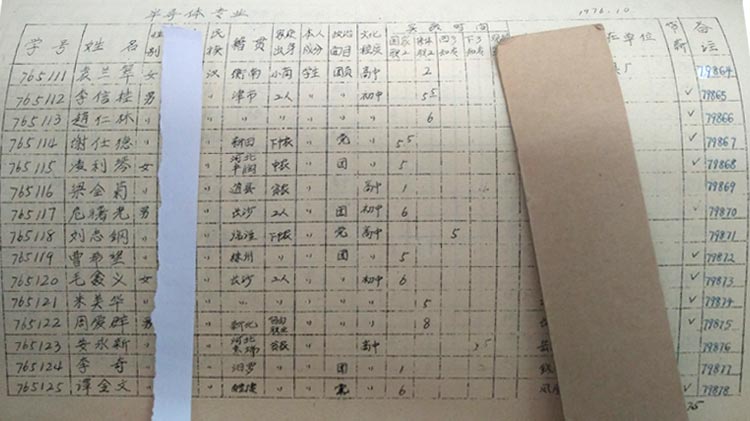 半导体专业 1976.10
学号 姓名 性别 民族 籍贯 家庭出身 本人成分 政治面目 文化程度 实践时间 单位 备注
国家职工 集体职工 回乡知青 下乡知青
765111 袁兰华 女 汉 衡南 小商 学生 团员 高中 2 79864
765112 李信桂 男 〃 津市 工人 〃 〃 初中 55 ✓ 79865
765113 趙仁林 〃 〃 〃 〃 〃 〃 〃 6 ✓ 79866
765114 谢仕德 〃 〃 新田 下中农 〃 党 〃 55 ✓ 79867
765115 凌利琴 女 〃 河北 中农 〃 团 〃 5 ✓ 79868
765116 梁金莉 〃 〃 道县 贫农 〃 〃 高中 1 79869
765117 危曙光 男 〃 长沙 工人 〃 团 初中 6 ✓ 79870
765118 刘志钢 〃 〃 下中农 〃 党 高中 5 79871
765119 曹 〃 〃 株州 〃 〃 团 〃 5 ✓ 79872
765120 毛 义 女 〃 长沙 工人 〃 〃 初中 6 ✓ 79873
765121 朱美华 〃 〃 〃 〃 〃 〃 〃 5 ✓ 79874
765122 周爱群 男 〃 新化 〃 〃 〃 8 ✓ 79875
765123 安永新 〃 〃 河北 贫农 〃 〃 高中 79876
765124 李奇 〃 〃 汨罗 〃 〃 团 〃 1 79877
765125 谭金文 〃 〃 〃 〃 党 〃 6 ✓ 79878